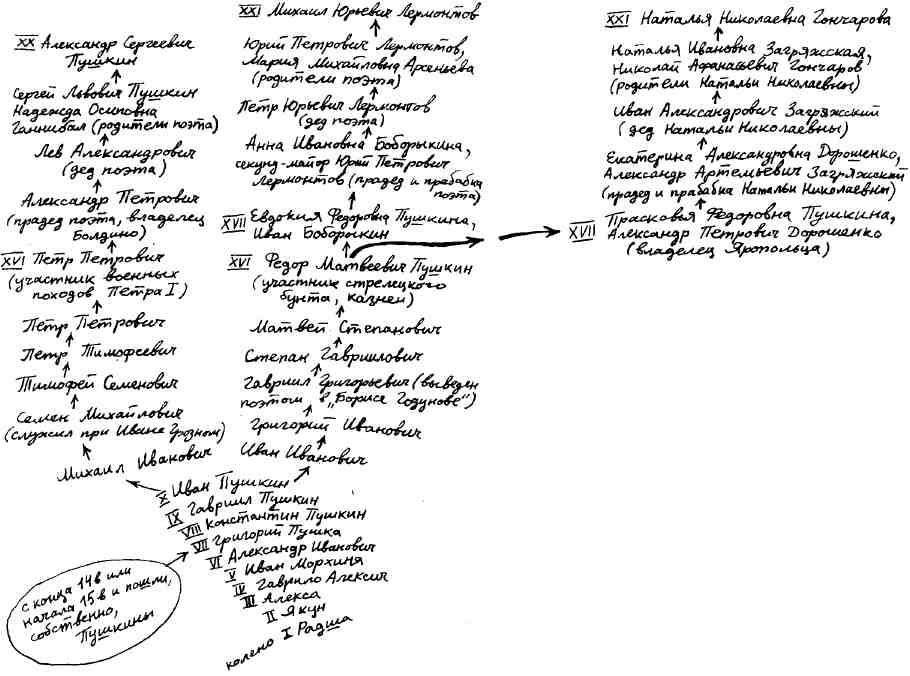 XX Александр Сергеевич
Пушкин
Сергей Львович Пушкин
Надежда Осиповна
Ганнибал (родители поэта)
Лев Александрович
(дед поэта)
Александр Петрович
(прадед поэта, владелец
Болдино)
XVI Петр Петрович
(участник военных
походов Петра I)
Петр Петрович
Петр Тимофеевич
Тимофей Семенович
Семен Михайлович
(служил при Иване Грозном)
Михаил Иванович
XXI Михаил Юрьевич Лермонтов
Юрий Петрович Лермонтов,
Мария Михайловна Арсеньева
(родители поэта)
Петр Юрьевич Лермонтов
(дед поэта)
Анна Ивановна Боборыкина,
секунд-майор Юрий Петрович
Лермонтов (прадед и прабабка
поэта)
XVII Евдокия Федоровна Пушкина,
Иван Боборыкин
XVI Федор Матвеевич Пушкин
(участник стрелецкого
бунта, казнен)
Матвей Степанович
Степан Гавриилович
Гавриил Григорьевич (выведен
поэтом в „Борисе Годунове")
Григорий Иванович
Иван Иванович
XXI Наталья Николаевна Гончарова
Наталья Ивановна Загряжская,
Николай Афанасьевич Гончаров
(родители Натальи Николаевны)
Иван Александрович Загряжский
(дед Натальи Николаевны)
Екатерина Александровна Дорошенко,
Александр Артемьевич Загряжский
(прадед и прабабка Натальи Николаевны)
XVII Прасковья Федоровна Пушкина,
Александр Петрович Дорошенко
(владелец Яропольца)
X Иван Пушкин
IX Гавриил Пушкин
VIII Константин Пушкин
VII Григорий Пушка
VI Александр Иванович
V Иван Морхиня
IV Гаврило Алексич
III Алекса
II Якун
колено I Радша
с конца 14 в или
начала 15 в и пошли,
собственно,
Пушкины